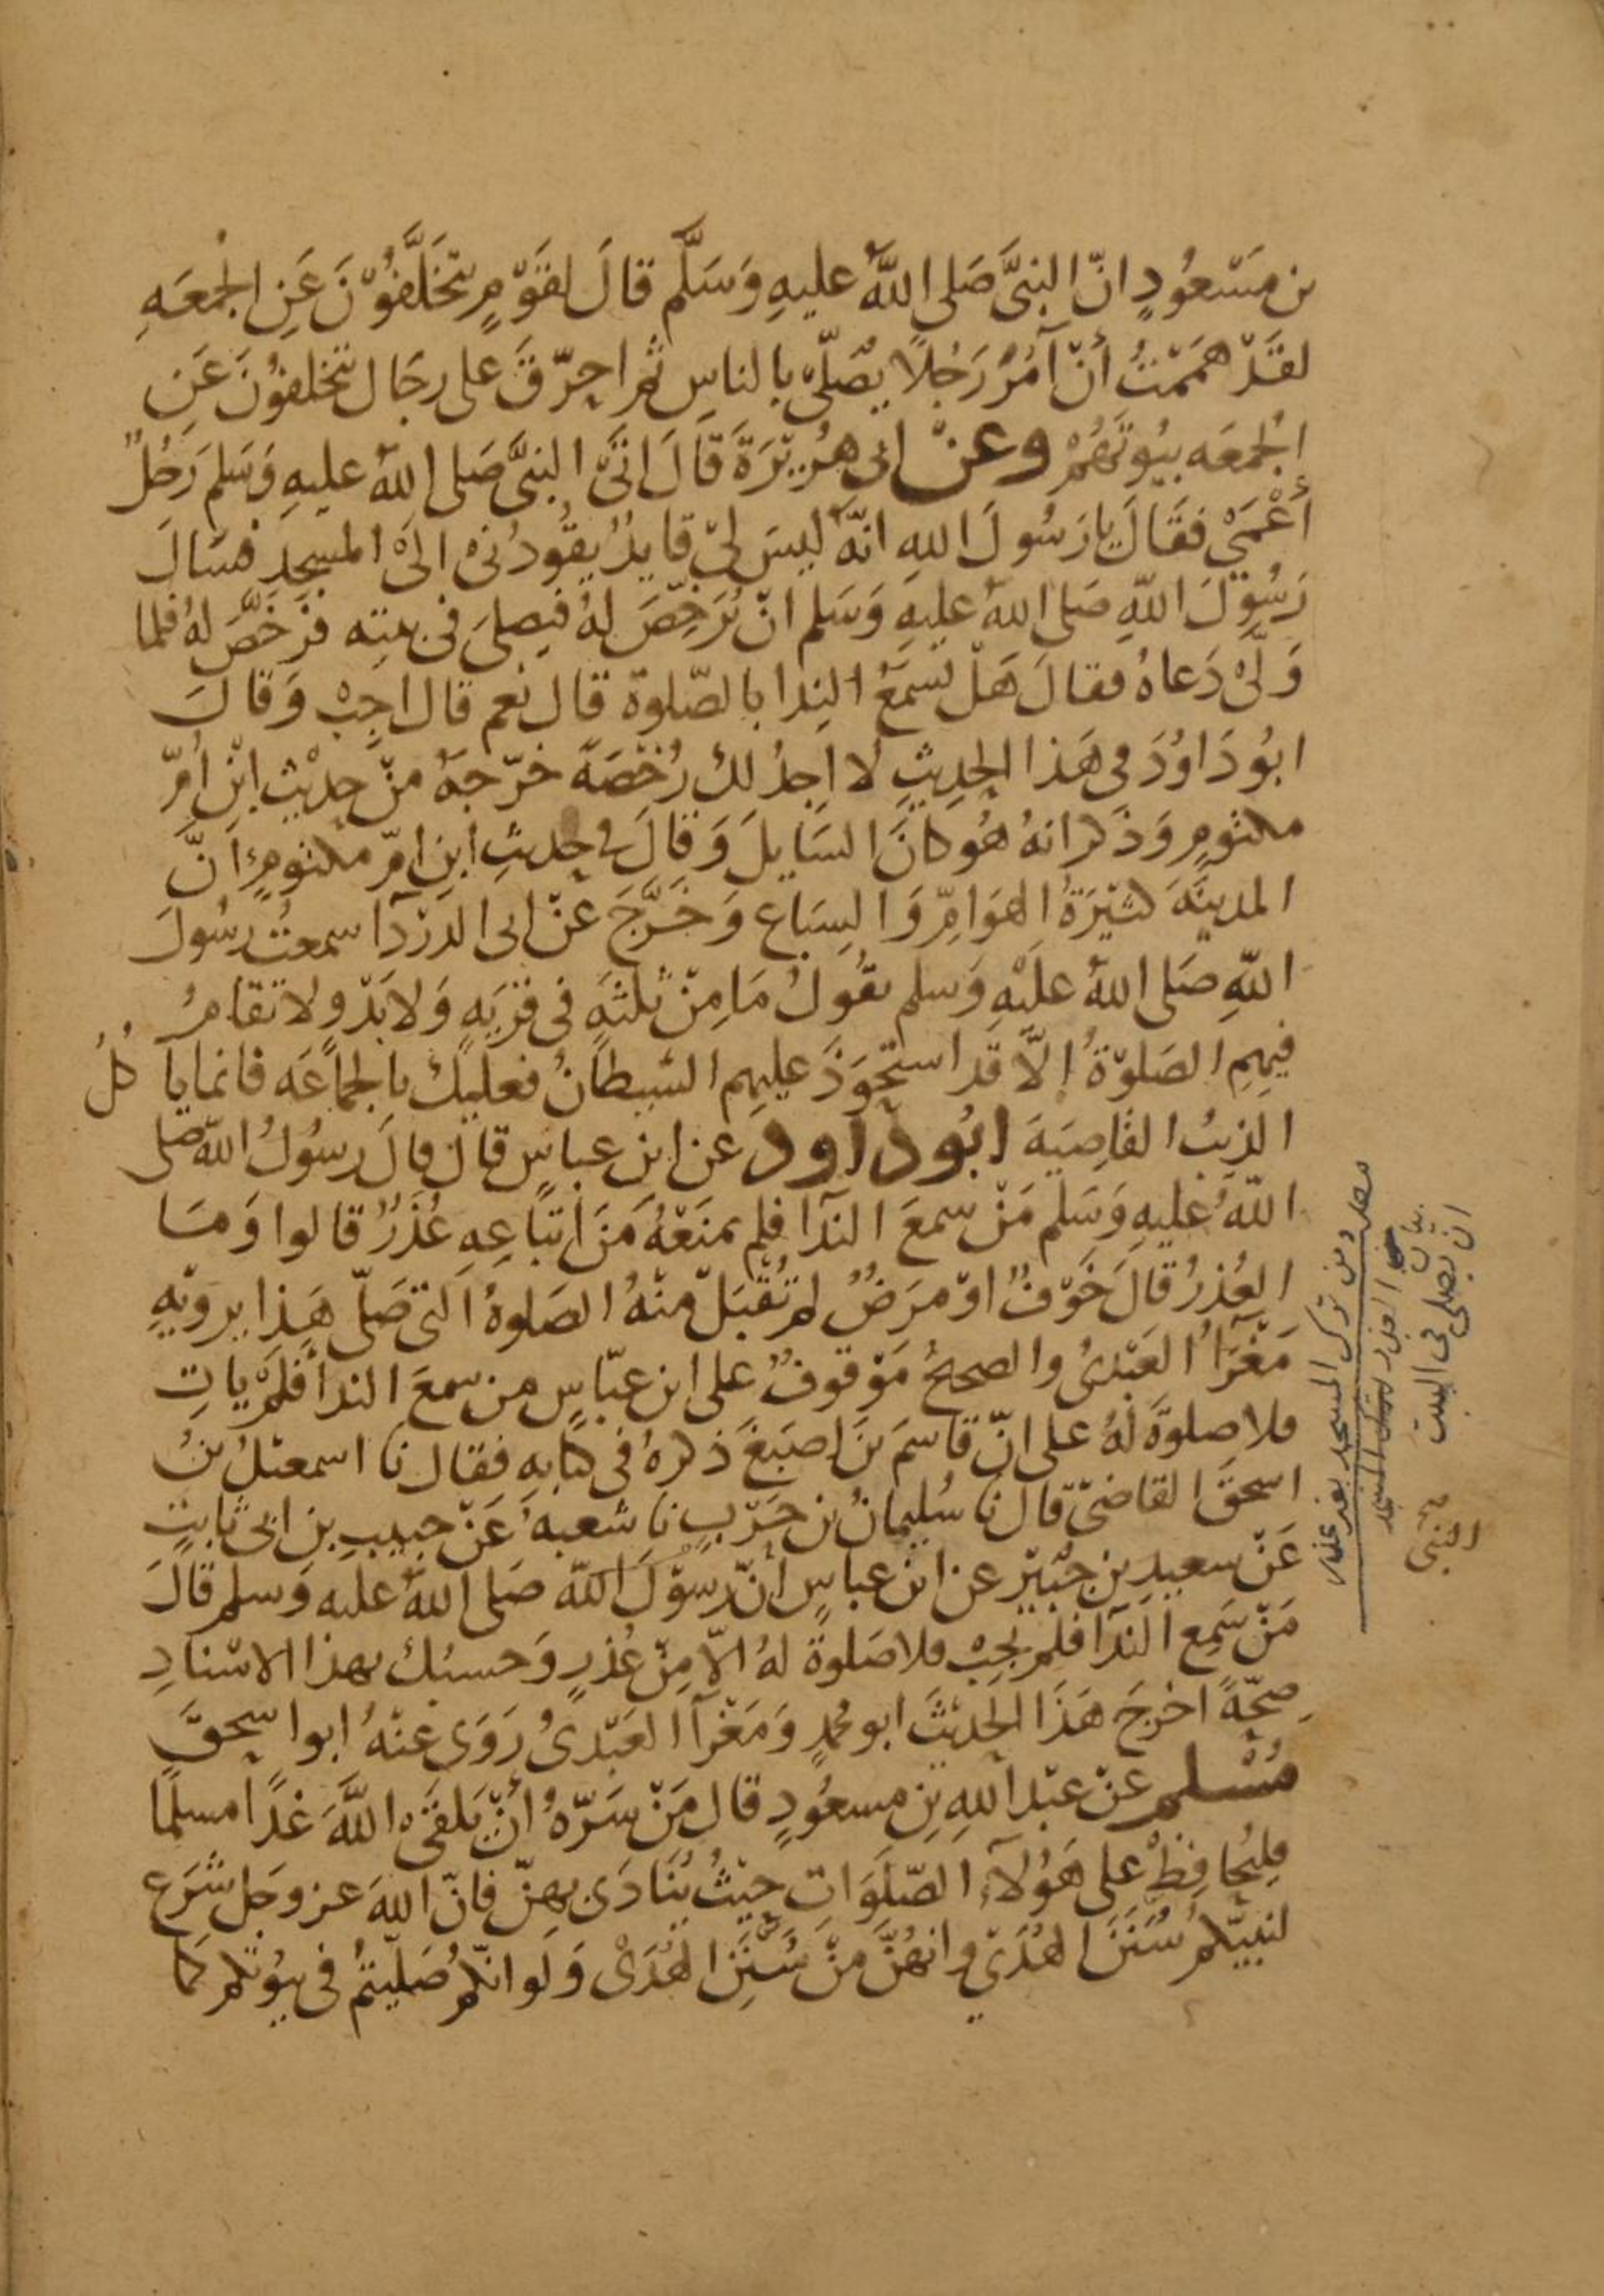 بن مَسْعُودٍ انّ النبىَّ صَلى اللهُ عليهِ وَسَلَّم قالَ لقَوْمٍ يتَخَلَّفُوْنَ عَنِ الجُمعَهِ
لقَدْ هَمَمْتُ أنْ آمُرَ رَجُلًا يُصَلّى بالناسِ ثم احرّقَ على رجَال يتخلفوُنَ عَنِ
الجُمعَه بيُوتَهُمْ وعنْ ابى هُرَيْرَةَ قَالَ اتَى النبىَّ صَلى اللهُ عليهِ وَسَلم رَجُلٌ
أعْمَىْ فقَالَ يا رَسُولَ اللهِ انّهُ ليسَ لىْ قايدٌ يقُودُنى الىْ المسجِدِ فسَالَ
رَسُوْلَ اللهِ صَلى اللهُ عليهِ وَسَلم انْ يُرَخّصَ لهُ فيصلىَ فى بيتِه فرَخّصَ لهُ فلما
وَلّىْ دَعاهُ فقالَ هَلْ تسْمَعُ النِدا بالصّلوة قال نعم قال اجِبْ وَقالَ
ابُو دَاوُدَ فى هَذا الحدِيثِ لا اجِدُ لكَ رُخْصَةً خرّجهُ منْ حديْثِ ابْنِ اُمّ
مكتومٍ وَذكر انهُ هُو كانَ السَايلَ وَقالَ فى حديثِ ابنِ امّ مكتومٍ انَّ
المدينَةَ كثيْرَةُ الهوَامِّ وَالسِبَاعِ وَخَرَّجَ عَنْ ابى الدرْدَآ سمعتُ رسُولَ
اللهِ صَلى اللهُ علَيْهِ وَسلم يقُولُ مَا مِنْ ثَلثةٍ فى قرْيَهٍ وَلا بَدْوٍ لا تقامُ
فيهِمِ الصَلوةُ إلاّ قد استحْوَذَ عليهِم الشيطانُ فعليكَ بالجماعَه فانما ياكلُ
الذيبُ القاصِيَهَ ابُو دَاود عن ابن عباسٍ قال قالَ رسُولُ اللهِ صَلى
اللهُ عليهِ وَسَلم مَنْ سمعَ الندَآ فلم يمنَعْهُ مَنَ اتباعِهِ عُذْرٌ قالوا وَمَا
العُذرُ قالَ خَوْفٌ اوْ مرَضٌ لم تُقْبَلْ منْهُ الصَلوةُ التى صَلّى هَذا يرويْهِ
مَغْرَآُ العَبْدىُ والصحيحُ مَوْقوفٌ على ابن عبّاسٍ من سمعَ الندا فلمْ ياتِ
فلا صلوةَ لهُ على انّ قاسمَ بنَ اصبَغَ ذكرهُ فى كتابهِ فقال نا اسمعيلُ بنُ
اسحقَ القاضىّ قال نا سُليمانُ بن حَرْبٍ نا شعبهُ عَنْ حبيبِ بنِ ابى ثابتٍ
عَنْ سعيدِ بن جُبَيْرٍ عن ابن عباسٍ أنّ رسُوْلَ اللهِ صَلى اللهُ عليه وَسلم قالَ
مَنْ سَمِع الندَآ فلم يجِبْ فلا صَلوةَ لهُ الاّ مِنْ عُذرٍ وَحسبُك بهذا الاسْنادِ
صِحّةً اخرجَ هَذَا الحديْثَ ابو محمدٍ وَمَغْرَآ العَبْدىُ رَوَى عنْهُ ابوا سحقَ
مُسْلم عَنْ عبْد اللهِ بنِ مسعُودٍ قال مَنْ سَرّهُ أنْ يَلقَىْ اللهَ غدًا مسلمًا
فليُحافِظْ على هَوُلآءِ الصّلوَاتِ حيْثُ يُنَادَى بهِنّ فانّ اللهَ عز وجل شَرَعَ
لنبيّكم سُنَنَ الهُدَىْ وانهُنّ مِنْ سُنَنِ الهُدَىْ وَلو انكم صَليْتُم فى بيُوتكم كما
من ترك المسجد بغير عذر
بيان العذر
ان يصلى فى البيت
النبى